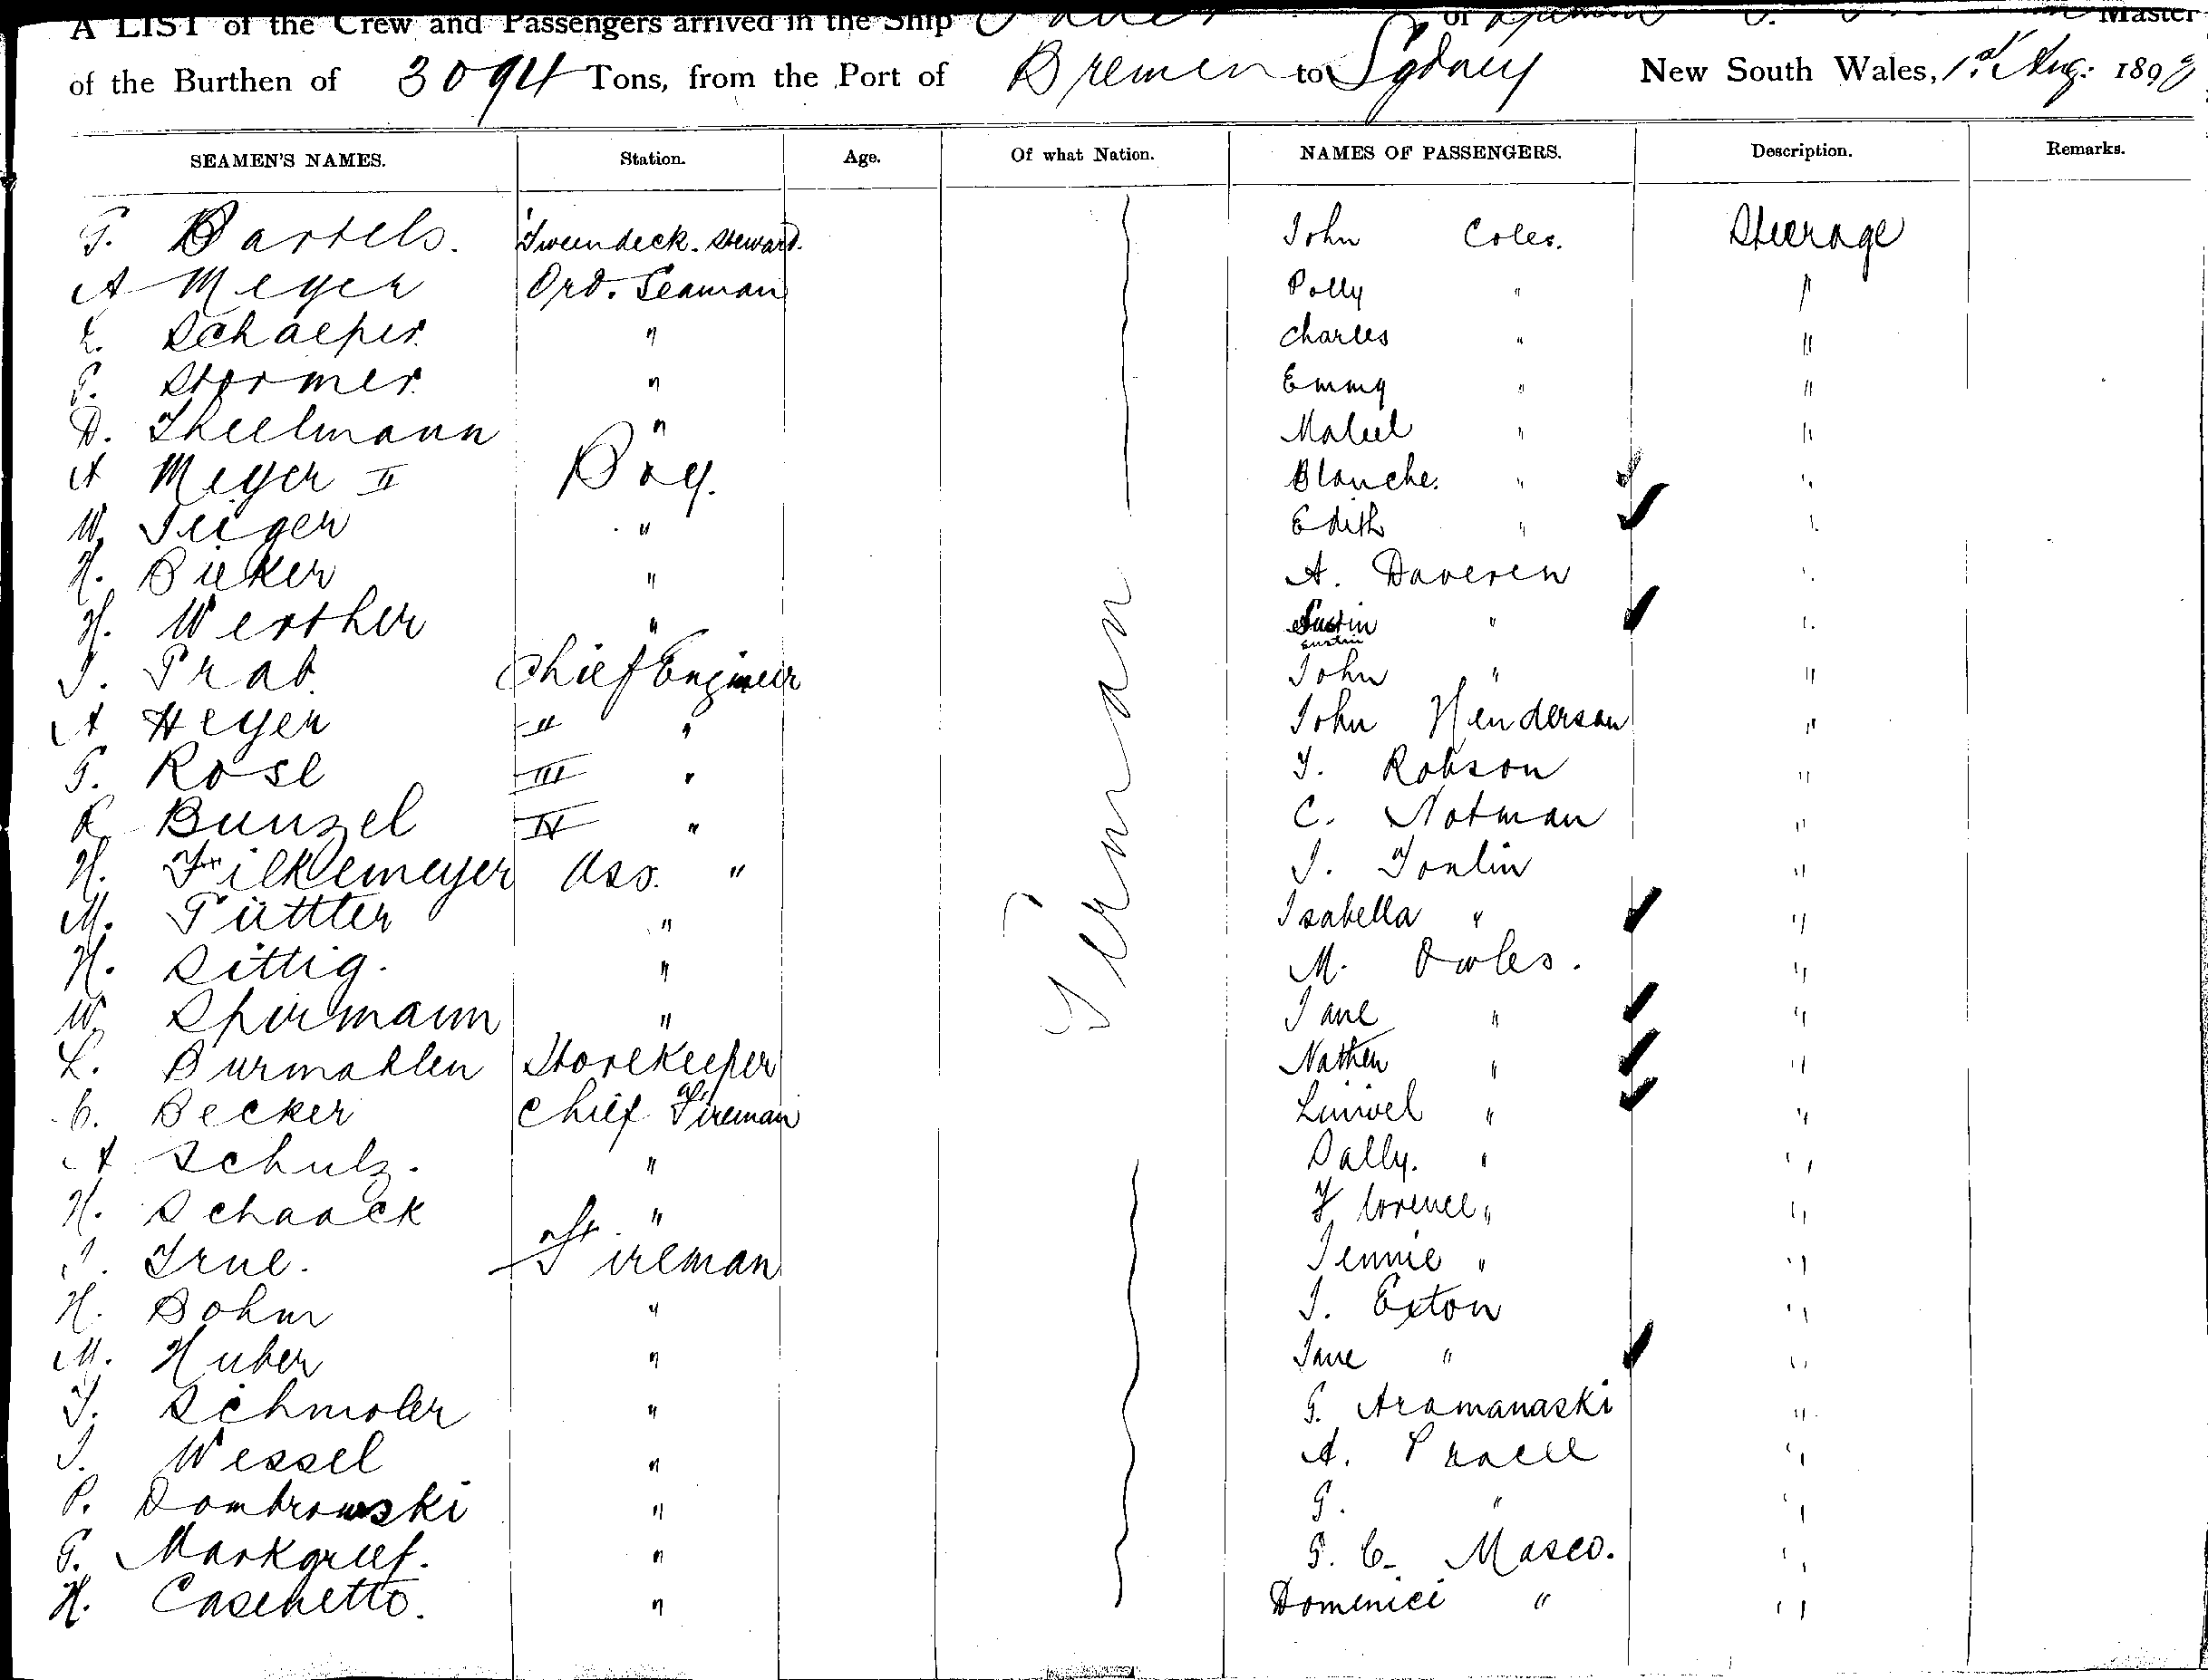 A LIST of the Crew and Passengers arrived in the Ship of Master
of the Burthen of 3094 Tons, from the Port of Bremen to Sydney New South Wales, 1st Aug. 189
SEAMEN'S NAMES. Station. Age. Of what Nation. NAMES OF PASSENGERS. Description. Remarks.
G. Bartels. Tweendeck. Steward. John Coles. Steerage
A Meyer Ord. Seaman Polly " "
Schaefer " Charles " "
G. Stormer " Emmy " "
D. Theelmann " Mabel " "
A Meyer II Boy. Blanche. " "
W. " Edith " "
H. Bieker " A. Daveren "
H. Werther " Justin " "
Justin
J. Prat Chief Engineer John " "
A Heyer II " John Henderson "
G. Rose III " T. Robson "
R. Bunzel IV " C. Notman "
H. Filklemeyer Ass. " J. Tonlin "
M. Püttter " Isabella " "
H. Sittig. " M. Owles. "
W. Spirmann " Jane " "
L. Burmahlen Storekeeper Nathen " "
C. Becker Chief Fireman " "
A Schulz. " Sally. " "
H. Schaack " Florence " "
J. True. Fireman Jennie " "
H. Bohm " J. Exton "
M. Huber " Jane " "
J. Schmoler " G. Aramanaski "
J. Wessel " A. "
P. Dombrowski " G. " "
G. Markgreef. " G. C. Masco. "
H. Caschetto. " Domenici " "
German